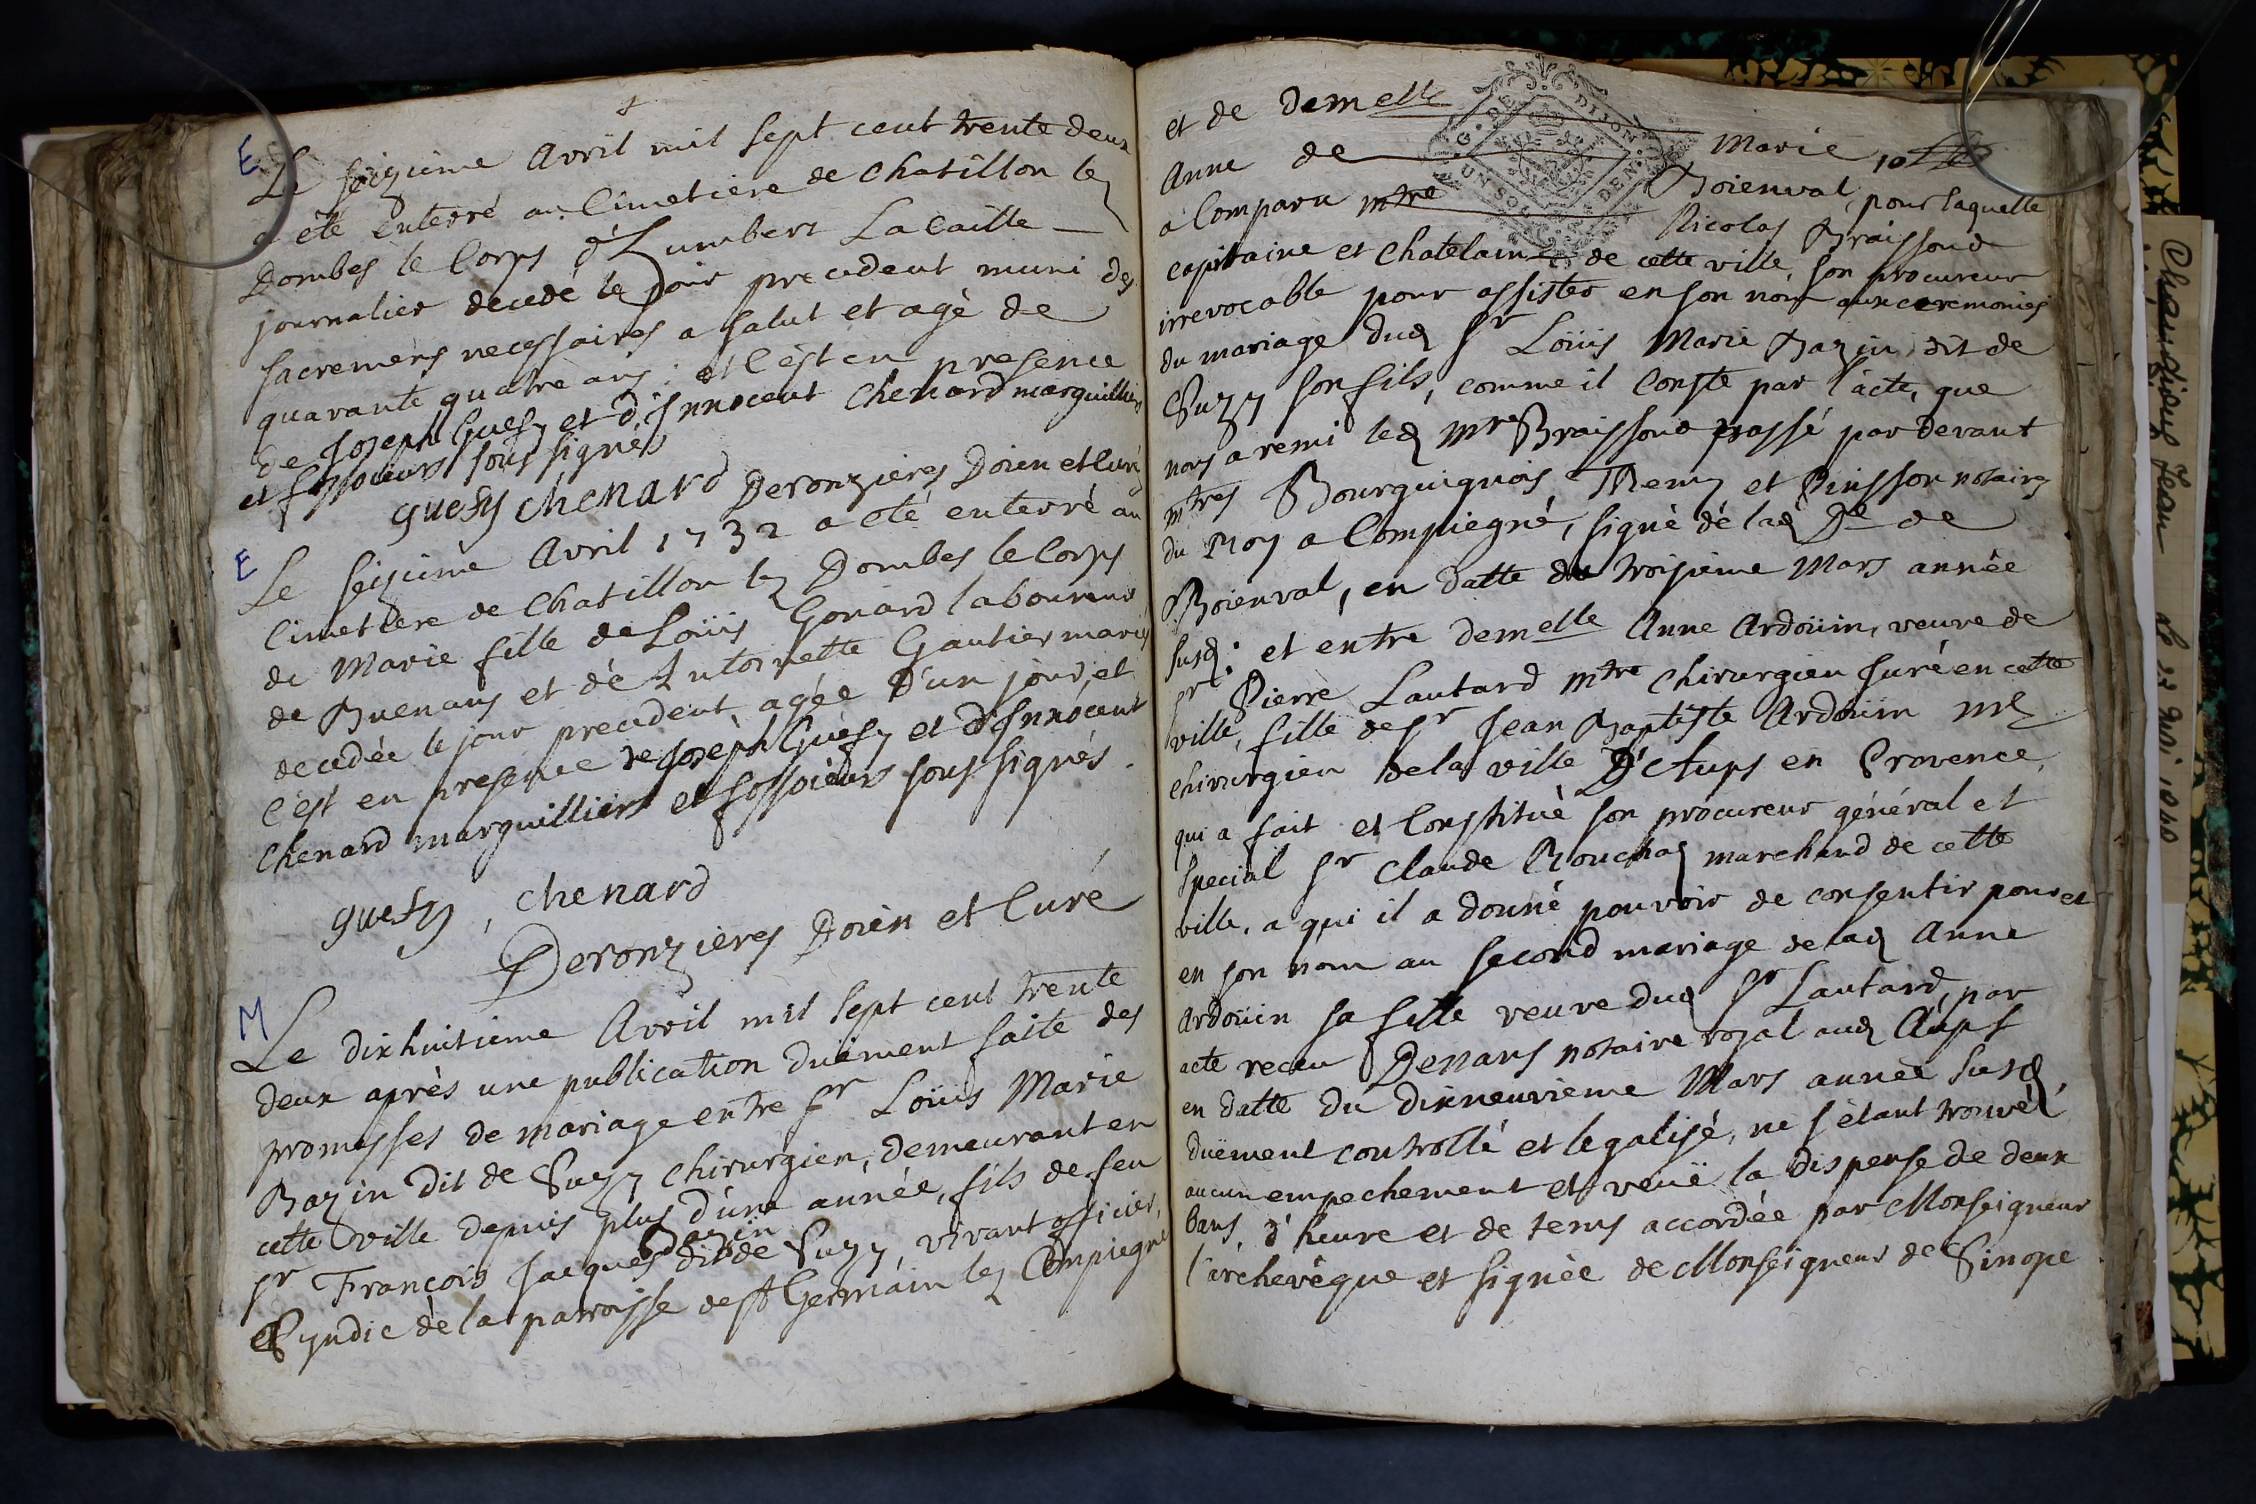 E
Le seizième Avril mil sept cent trente deux
a été enterré au Cimetiere de Chatillon lez
Dombes le Corps d'Humbert Lacaille
journalier decedé le jour precedent muni des
sacremens necessaires a salut et agè de
quarante quatre ans : et c'est en presence
de Joseph Guesy et d'Innocent Chenard marguilliers
et fossoieurs soussignés
guesy chenard Deronzieres Doien et Curé
E
Le seizieme Avril 1732 a eté enterré au
Cimetiere de Chatillon lez Dombes le Corps
de Marie fille de Loüis Gonard laboureur
de Buenans et de Antoinette Gautier mariés
decedée le jour precedent, agée d'un jour, et
c'est en presence de Joseph Guesy et d'Innocent
Chenard marguilliers et fossoieurs soussignés.
guesy, chenard
Deronzieres Doien et Curé
M
Le dixhuitieme Avril mil sept cent trente
deux après une publication duëment faite des
promesses de mariage entre sr Loüis Marie
Bazin dit de Suzy chirurgien, demeurant en
cette ville depuis plus d'une année, fils de feu
Bazin
sr François Jacques dit de Suzy, vivant officier,
Syndic de la paroisse de st Germain lez Compiegne
G. DE DIJON
UN SOL DEN.
et de demelle Marie 10
Anne de Boienval, pour laquelle
a comparu mtre Nicolas Braissoud
capitaine et Chatelain de cette ville, son procureur
irrevocable pour assister en son nom aux ceremonies
du mariage dud sr Loüis Marie Bazin dit de
Suzy son fils, comme il conste par l'acte, que
nous a remi led mre Braissoud passé par devant
mtres Bourguignois, Themy et Pinsson notaires
du Roy a Compiegne, signé de lad De de
Boienval, en datte du troisieme Mars année
susd: et entre demelle Anne Ardoüin, veuve de
sr Pierre Lautard mtre Chirurgien Juré en cette
ville, fille de sr Jean Baptiste Ardoüin
chirurgien de la ville D'Aups en Provence,
qui a fait et constitué son procureur général et
special sr Claude marchand de cette
ville, a qui il a donné pouvoir de consentir pour et
en son nom au second mariage de lad Anne
Ardoüin sa fille veuve dud sr Lautard, par
acte receu Denans notaire royal aud Aups
en datte du dixneuvieme Mars année susd
duëment controllé et legalisé, ne s'étant trouvé
aucun empechement et veuë la dispense de deux
bans, d'heure et de tems accordée par Monseigneur
l'archevêque et signée de Monseigneur de Sinope
Jean